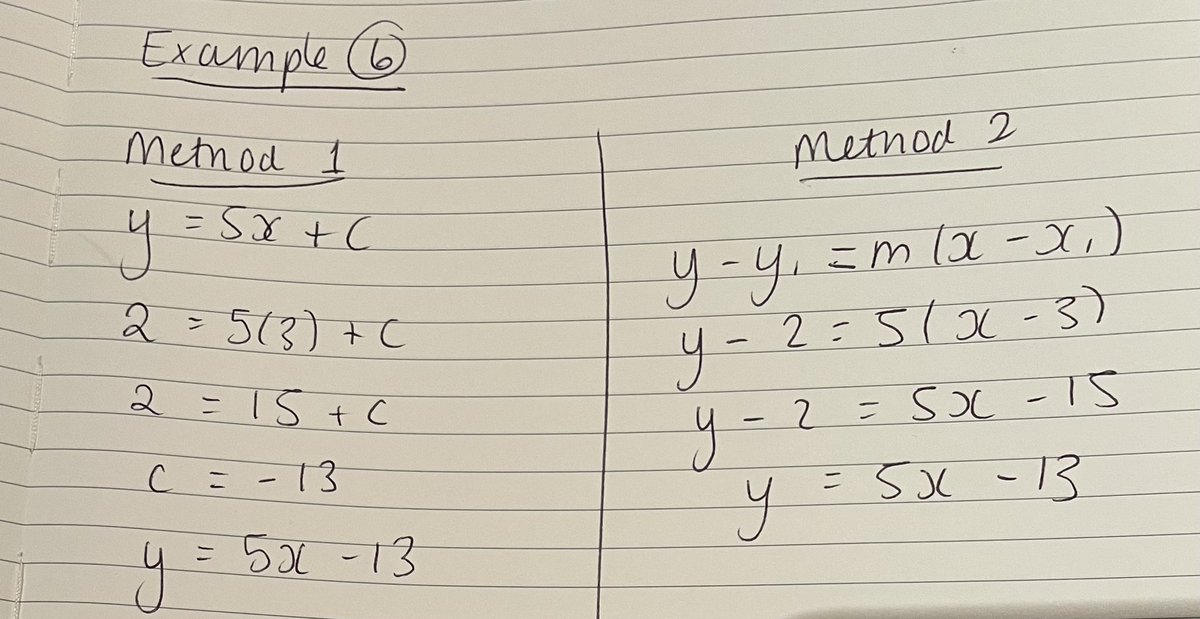 Example 6
Method 1
y = 5x + c
2 = 5(3) + c
2 = 15 + c
c = -13
y = 5x - 13
Method 2
y - y₁ = m(x - x₁)
y - 2 = 5(x - 3)
y - 2 = 5x - 15
y = 5x - 13